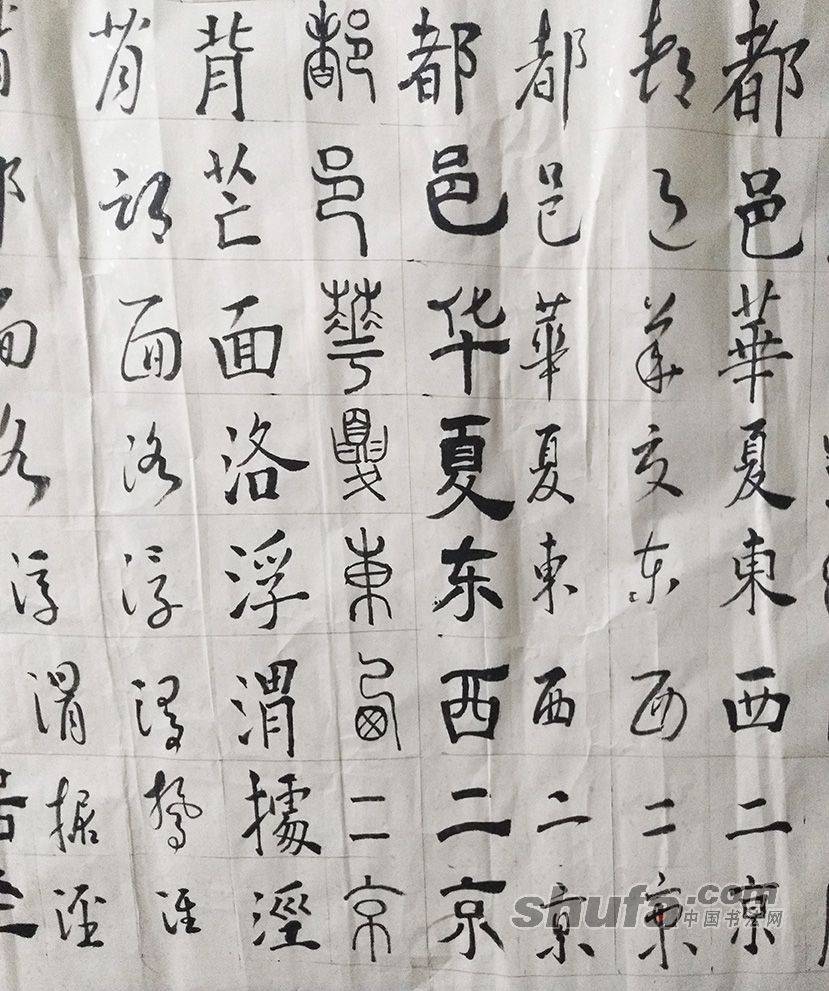 都邑華夏東西二京
都邑華夏东西二京
都邑華夏東西二京
都邑华夏东西二京
都邑華夏東西二京
背芒面洛浮渭據涇
背邙面洛浮渭據涇
面洛浮渭据泾
shufa.com
中国书法网